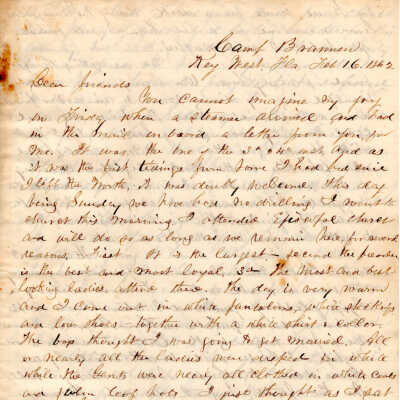 Camp Brannan
Key West. Fla. Feb 16. 1862
Dear friends
You cannot imagine my joy
on Friday when a steamer arrived and had
in the mail on board a letter from you for
me. It was the one of the 3d inst and as
it was the first tidings from home I had had since
I left the North, it was doubly welcome. This day
being Sunday we have had no drilling. I went to
church this morning. I attended Episcopal church
and will do so as long as we remain here, for several
reasons. First It is the largest - second the preacher
is the best and most loyal, 3d The most and best
looking ladies attend there. The day is very warm
and I come out in white pantaloons, white stockings
and low shoes - together with a white shirt & collar.
The boys thought I was going to get married. All
or nearly all the ladies were dressed in white
while the Gents were nearly all clothed in white coats
and palm leaf hats. I just thought as I sat